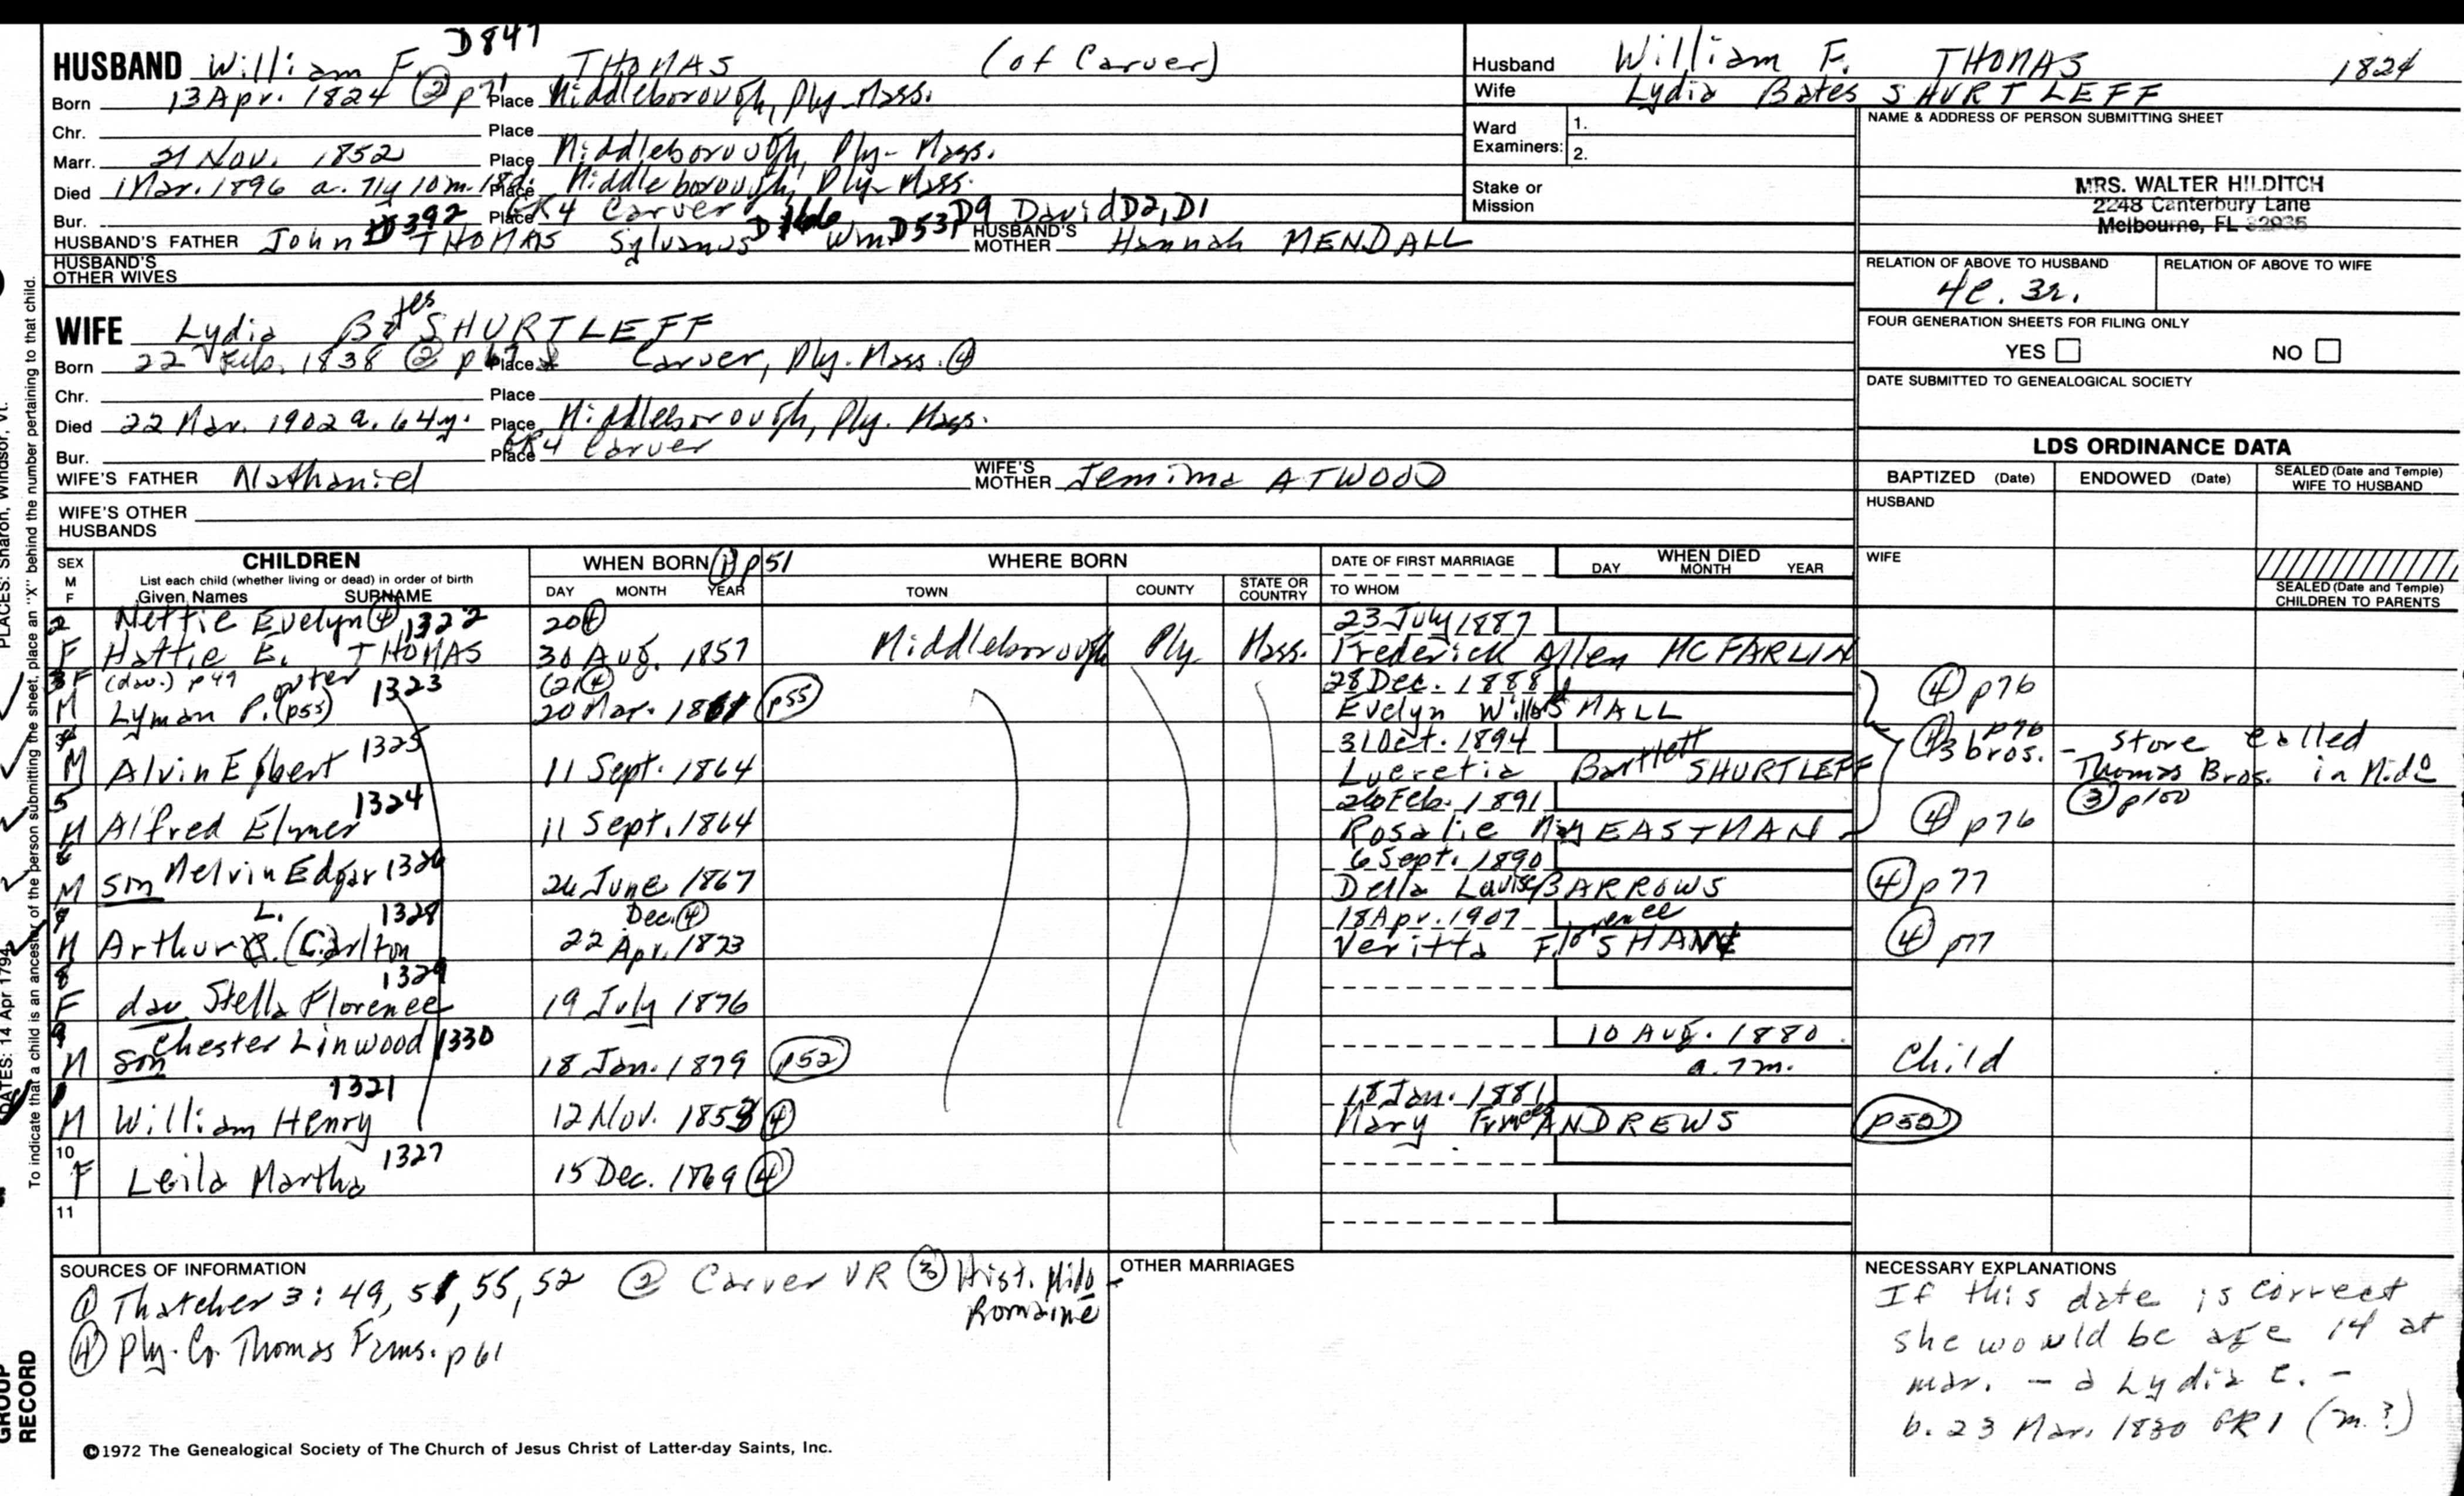 D847
HUSBAND William F. THOMAS (of Carver)
Born 13 Apr. 1824 ② Place Middleborough, Ply-Mass.
Chr. Place
Marr. 21 Nov. 1852 Place Middleborough, Ply- Mass.
Died 1 Mar. 1896 a. 71y 10m. 18d. Place Middleborough, Ply-Mass.
Bur. Place GR4 Carver
HUSBAND'S FATHER John D392 THOMAS Sylvanus D166 Wm D53 D9 David D2, D1
HUSBAND'S MOTHER Hannah MENDALL
HUSBAND'S OTHER WIVES
WIFE Lydia Bates SHURTLEFF
Born 22 Feb. 1838 ② Place Carver, Ply. Mass. ④
Chr. Place
Died 22 Mar. 1902 a. 64y. Place Middleborough, Ply. Mass.
Bur. Place GR4 Carver
WIFE'S FATHER Nathaniel WIFE'S MOTHER Jemima ATWOOD
WIFE'S OTHER HUSBANDS
Husband William F. THOMAS 1824
Wife Lydia Bates SHURTLEFF
Ward Examiners: 1.
2.
Stake or Mission
NAME & ADDRESS OF PERSON SUBMITTING SHEET
MRS. WALTER HILDITCH
2248 Canterbury Lane
Melbourne, FL 32935
RELATION OF ABOVE TO HUSBAND RELATION OF ABOVE TO WIFE
4C. 3r.
FOUR GENERATION SHEETS FOR FILING ONLY
YES NO
DATE SUBMITTED TO GENEALOGICAL SOCIETY
LDS ORDINANCE DATA
BAPTIZED (Date) ENDOWED (Date) SEALED (Date and Temple) WIFE TO HUSBAND
HUSBAND
WIFE
SEALED (Date and Temple) CHILDREN TO PARENTS
SEX M F
CHILDREN
List each child (whether living or dead) in order of birth
Given Names SURNAME
WHEN BORN ① p51
DAY MONTH YEAR
WHERE BORN
TOWN COUNTY STATE OR COUNTRY
DATE OF FIRST MARRIAGE
TO WHOM
WHEN DIED
DAY MONTH YEAR
2 Nettie Evelyn ④ 1322 20 ④ 23 July 1887
F Hattie E. THOMAS 30 Aug. 1857 Middleborough Ply. Mass. Frederick Allen MCFARLIN
3 F (dau.) p49 orter 1323 ④ 28 Dec. 1888
M Lyman P. (p55) 20 Mar. 1861 p55 Evelyn Willis SMALL ④ p76
1325 31 Oct. 1894 p76
M Alvin Egbert 11 Sept. 1864 Lucretia Bartlett SHURTLEFF 3 bros. - store called Thomas Bros. in Mido ③ p100
5 1324 26 Feb. 1891
M Alfred Elmer 11 Sept. 1864 Rosalie May EASTMAN ④ p76
6 6 Sept. 1890
M son Melvin Edgar 1326 26 June 1867 Della Louise BARROWS ④ p77
7 L. 1328 Dec. ④ 18 Apr. 1907
M Arthur (Carlton 22 Apr. 1873 Veritta Florence SHAW ④ p77
8 1329
F dau Stella Florence 19 July 1876
9 Chester Linwood 1330 10 Aug. 1880
M son 18 Jan. 1879 p52 a. 7m. Child
1 1321 18 Jan. 1881
M William Henry 12 Nov. 1853 ④ Mary Frances ANDREWS p52
10 1327
F Leila Martha 15 Dec. 1869 ④
11
SOURCES OF INFORMATION
① Thatcher 3: 49, 51, 55, 52 ② Carver VR ③ Hist. Mido - Romaine
④ Ply. Co. Thomas Fams. p61
OTHER MARRIAGES
NECESSARY EXPLANATIONS
If this date is correct
she would be age 14 at
mar. - a Lydia C. -
b. 23 Mar. 1830 GR1 (m.?)
©1972 The Genealogical Society of The Church of Jesus Christ of Latter-day Saints, Inc.
To indicate that a child is an ancestor of the person submitting the sheet, place an "X" behind the number pertaining to that child.
DATES: 14 Apr 1794
PLACES: Sharon, Windsor, Vt.
GROUP
RECORD